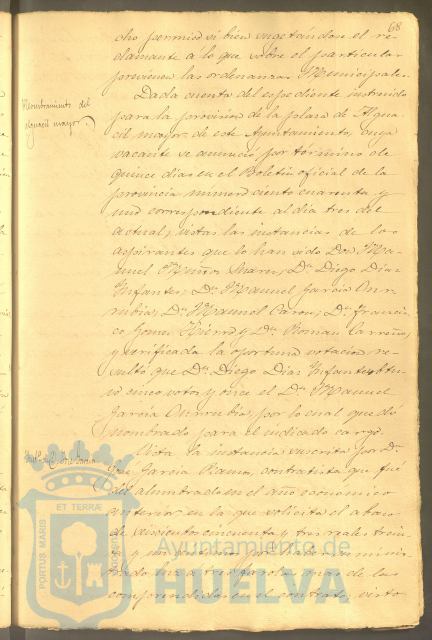 68
cho permiso si bien sugetándose el re-
clamante á lo que sobre el particular
previenen las ordenanzas Municipales.
Nombramiento del
alguacil mayor.
Dada cuenta del espediente instruido
para la provision de la plaza de Algua-
cil mayor de este Ayuntamiento, cuya
vacante se anunció por término de
quince dias en el Boletin oficial de la
provincia número ciento cuarenta y
uno correspondiente al dia tres del
actual; vistas las instancias de los
aspirantes que lo han sido Don Ma-
nuel Suarez, Dn. Diego Diaz
Infantes; Dn. Manuel Garcia On-
rubia; Dn. Manuel Dn. Francis-
co Gomez Hierro y Dn. Roman Carreño,
y verificada la oportuna votacion re-
sultó que Dn. Diego Diaz Infantes obtu-
vo cinco votos y once el Dn. Manuel
Garcia Onrubia, por lo cual quedó
nombrado para el indicado cargo.
Vista la instancia suscrita por Dn.
José Garcia Ramos, contratista que fué
del alumbrado en el año economico
anterior en la que solicita el abono
de seiscientos cincuenta y tres reales trein-
ta y un por haber suminis-
trado luz a tres faroles mas de los
comprendidos en el contrato; visto
PORTUS MARIS ET TERRÆ CUSTODIA
Ayuntamiento de
HUELVA